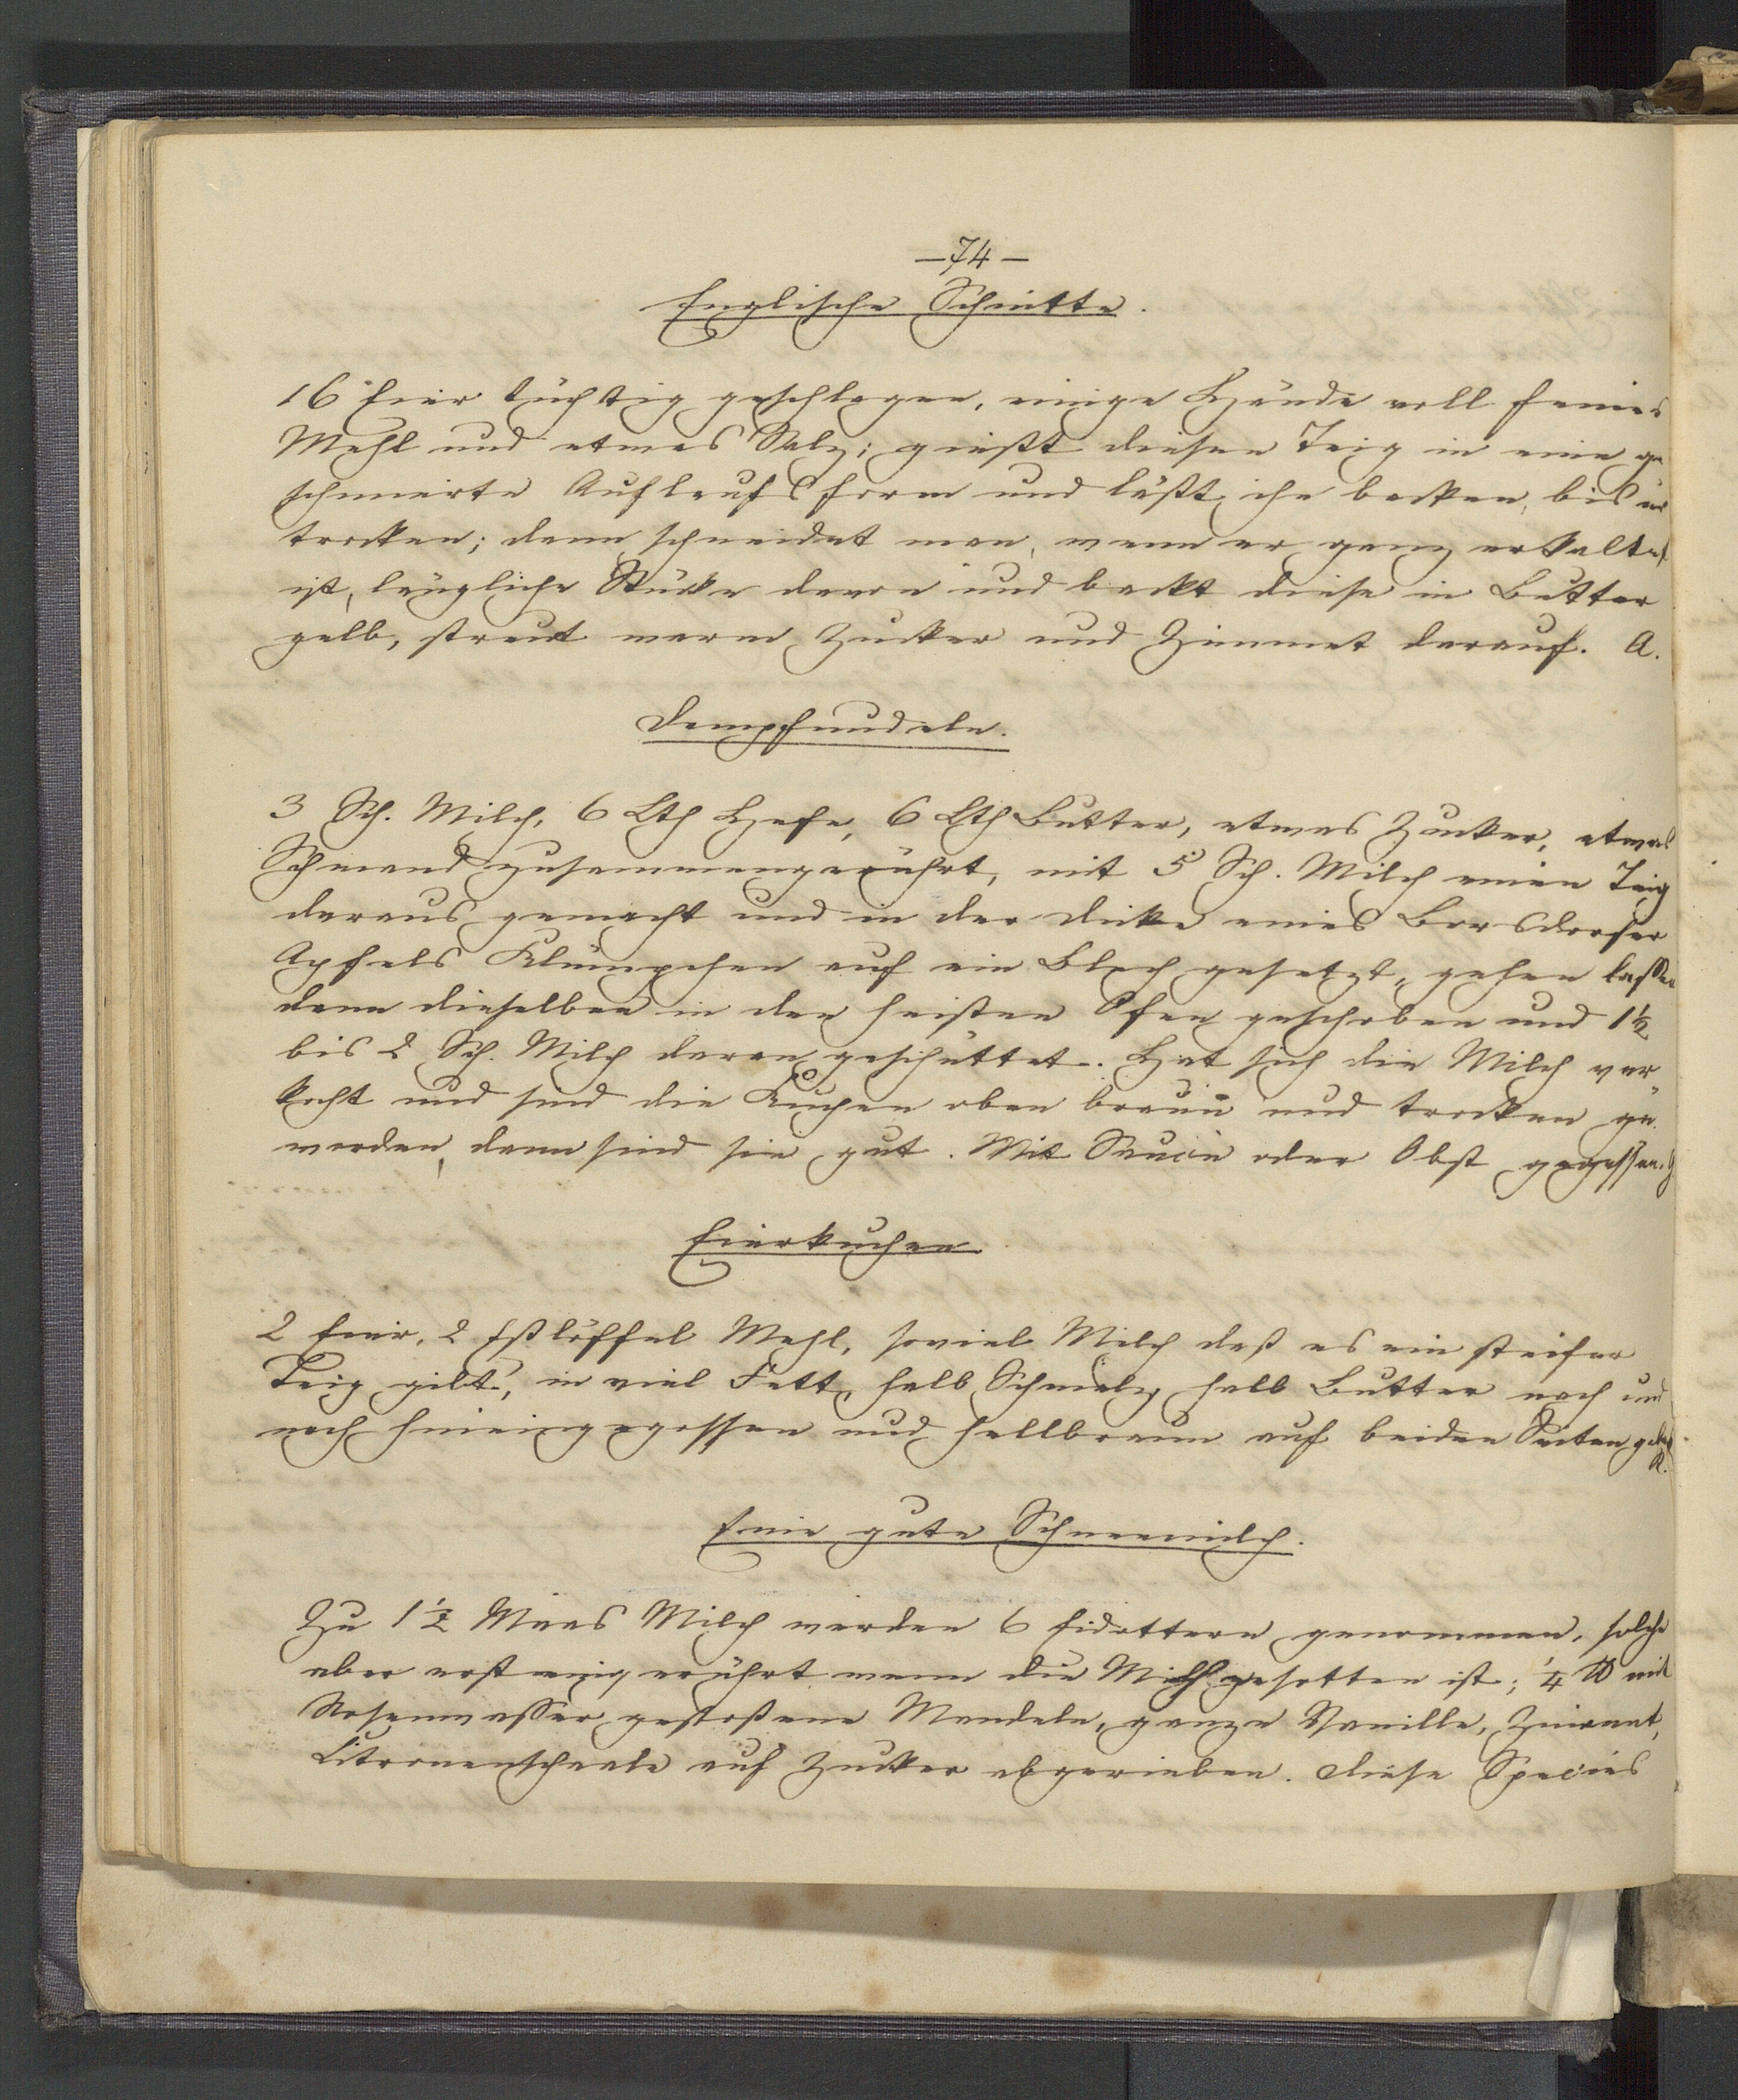 —74—
Englische Schnitte.
16 Eier tüchtig geschlagen, einige Hände voll feines
Mehl und etwas Salz; gießt diesen Teig in eine ge
schmierte Auflaufsform und läßt ihn backen, bis
trocken; dann schneidet man, wenn er ganz erkaltet
ist, längliche Stücke davon und backt diese in Butter
gelb, streut warm Zucker und Zimmet darauf. A.
Dampfnudeln.
3 Sch. Milch, 6 Lth Hefe, 6 Lth Butter, etwas Zucker, etwas
Schmand zusammengerührt, mit 5 Sch. Milch einen Teig
daraus gemacht und in der Dicke eines Borsdorfer
Apfels Klümpchen auf ein Blech gesetzt, gehen lassen
dann dieselben in den heißen Ofen geschoben und 1½
bis 2 Sch. Milch daran geschüttet. Hat sich die Milch ver
kocht und sind die Kuchen oben braun und trocken ge
worden, dann sind sie gut. Mit Sauce oder Obst gegessen.
Eierkuchen
2 Eier, 2 Eßlöffel Mehl, soviel Milch daß es ein steifer
Teig gibt, in viel Fett, halb Schmalz halb Butter nach und
nach hineingegossen und hellbraun auf beiden Seiten
R.
Eine gute Schneemilch.
Zu 1½ Maas Milch werden 6 Eidottern genommen, solche
aber erst eingerührt wenn die Milch gesotten ist; ¼ ℔ mit
Rosenwasser gestoßene Mandeln, ganze Vanille, Zimmet,
Citronenschaale auf Zucker abgerieben. Diese Species